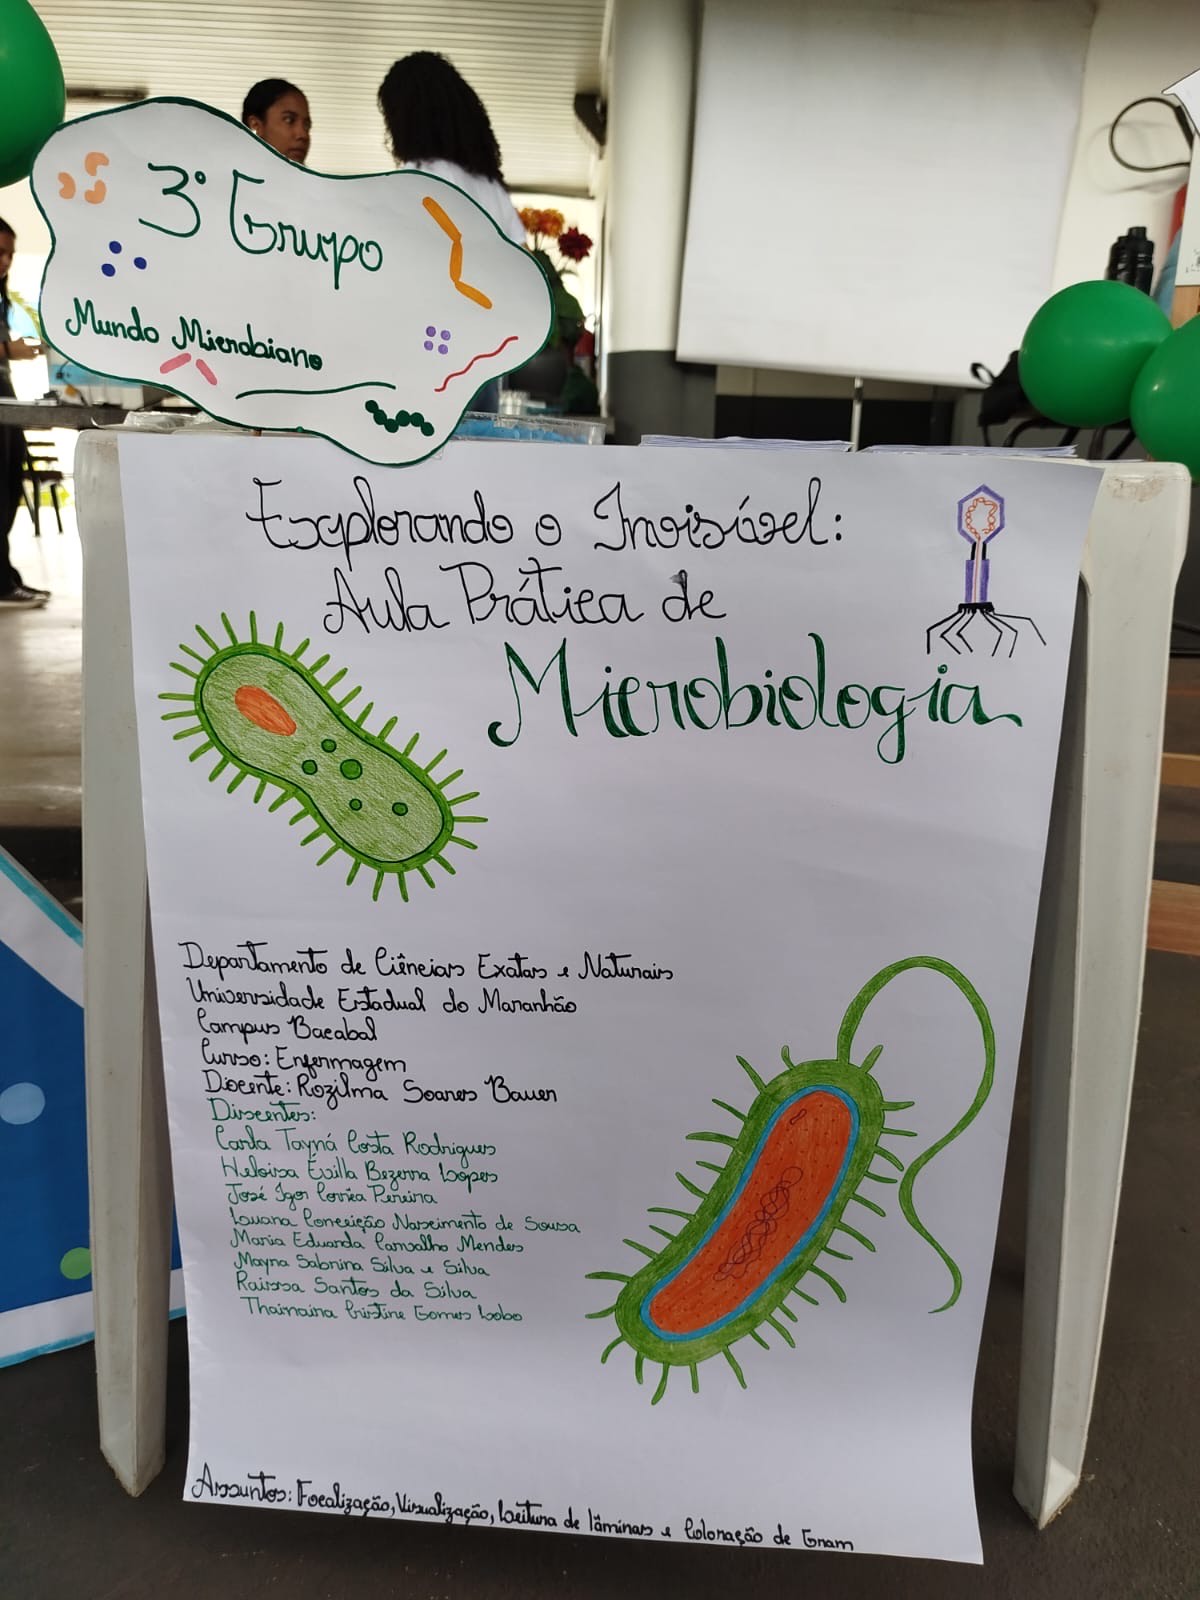 3° Grupo
Mundo Microbiano
Explorando o Invisível:
Aula Prática de
Microbiologia
Departamento de Ciências Exatas e Naturais
Universidade Estadual do Maranhão
Campus Bacabal
Curso: Enfermagem
Docente: Rozilma Soares Bauer
Discentes:
Carla Tayná Costa Rodrigues
Heloisa Évilla Bezerra Lopes
José Igor Corrêa Pereira
Luana Conceição Nascimento de Sousa
Maria Eduarda Carvalho Mendes
Mayna Sabrina Silva e Silva
Raissa Santos da Silva
Thainaina Cristine Gomes Lobo
Assuntos: Focalização, Visualização, Leitura de lâminas e Coloração de Gram